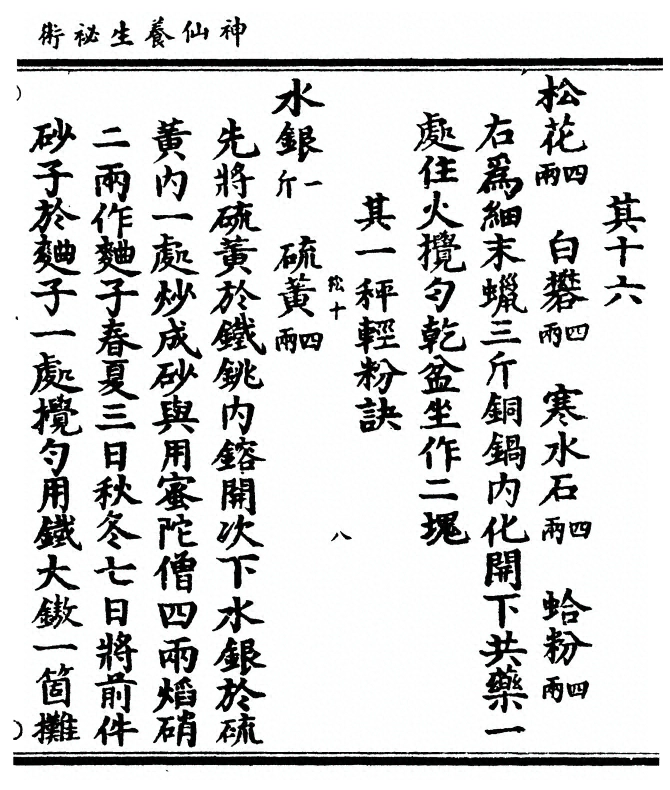 神仙養生祕術
其十六
松花四兩 白礬四兩 寒水石四兩 蛤粉四兩
右爲細末蠟三斤銅鍋內化開下共藥一
處住火攪勻乾盆坐作二塊
其一秤輕粉訣
松十 八
水銀一斤 硫黃四兩
先將硫黃於鐵銚內鎔開次下水銀於硫
黃內一處炒成砂與用蜜陀僧四兩焰硝
二兩作麯子春夏三日秋冬七日將前件
砂子於麯子一處攪勻用鐵大鏊一箇攤